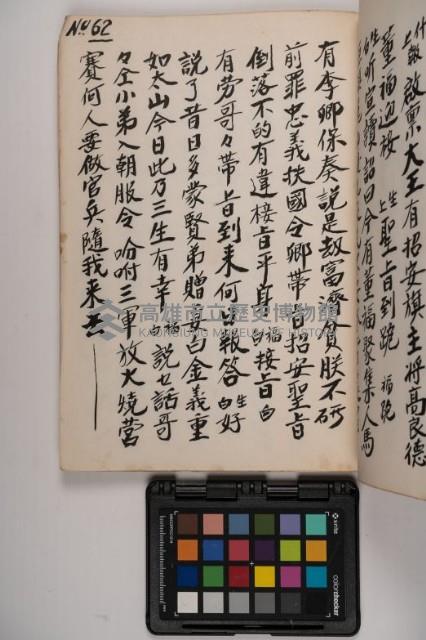 什
上啟啟稟大王有招安旗主將高良德
董福迎接 生上聖旨到跪 福跪
生白听宣讀詔曰今有董福聚集人馬
有李卿保奏說是刼富濟貧朕不斫
前罪忠義扶國令卿帶旨招安聖旨
倒落不的有違接旨平身 福接旨 白
有劳哥々帶旨到來何以報答 生白好
說了昔日多蒙賢弟贈白金義重
如太山今日此乃三生有幸 福白說乜話哥
々仝小弟入朝服令 吩咐三軍放火燒营
賽何人要做官兵隨我来去
No 62
高雄市立歷史博物館
KAOHSIUNG MUSEUM OF HISTORY
x-rite
colorchecker